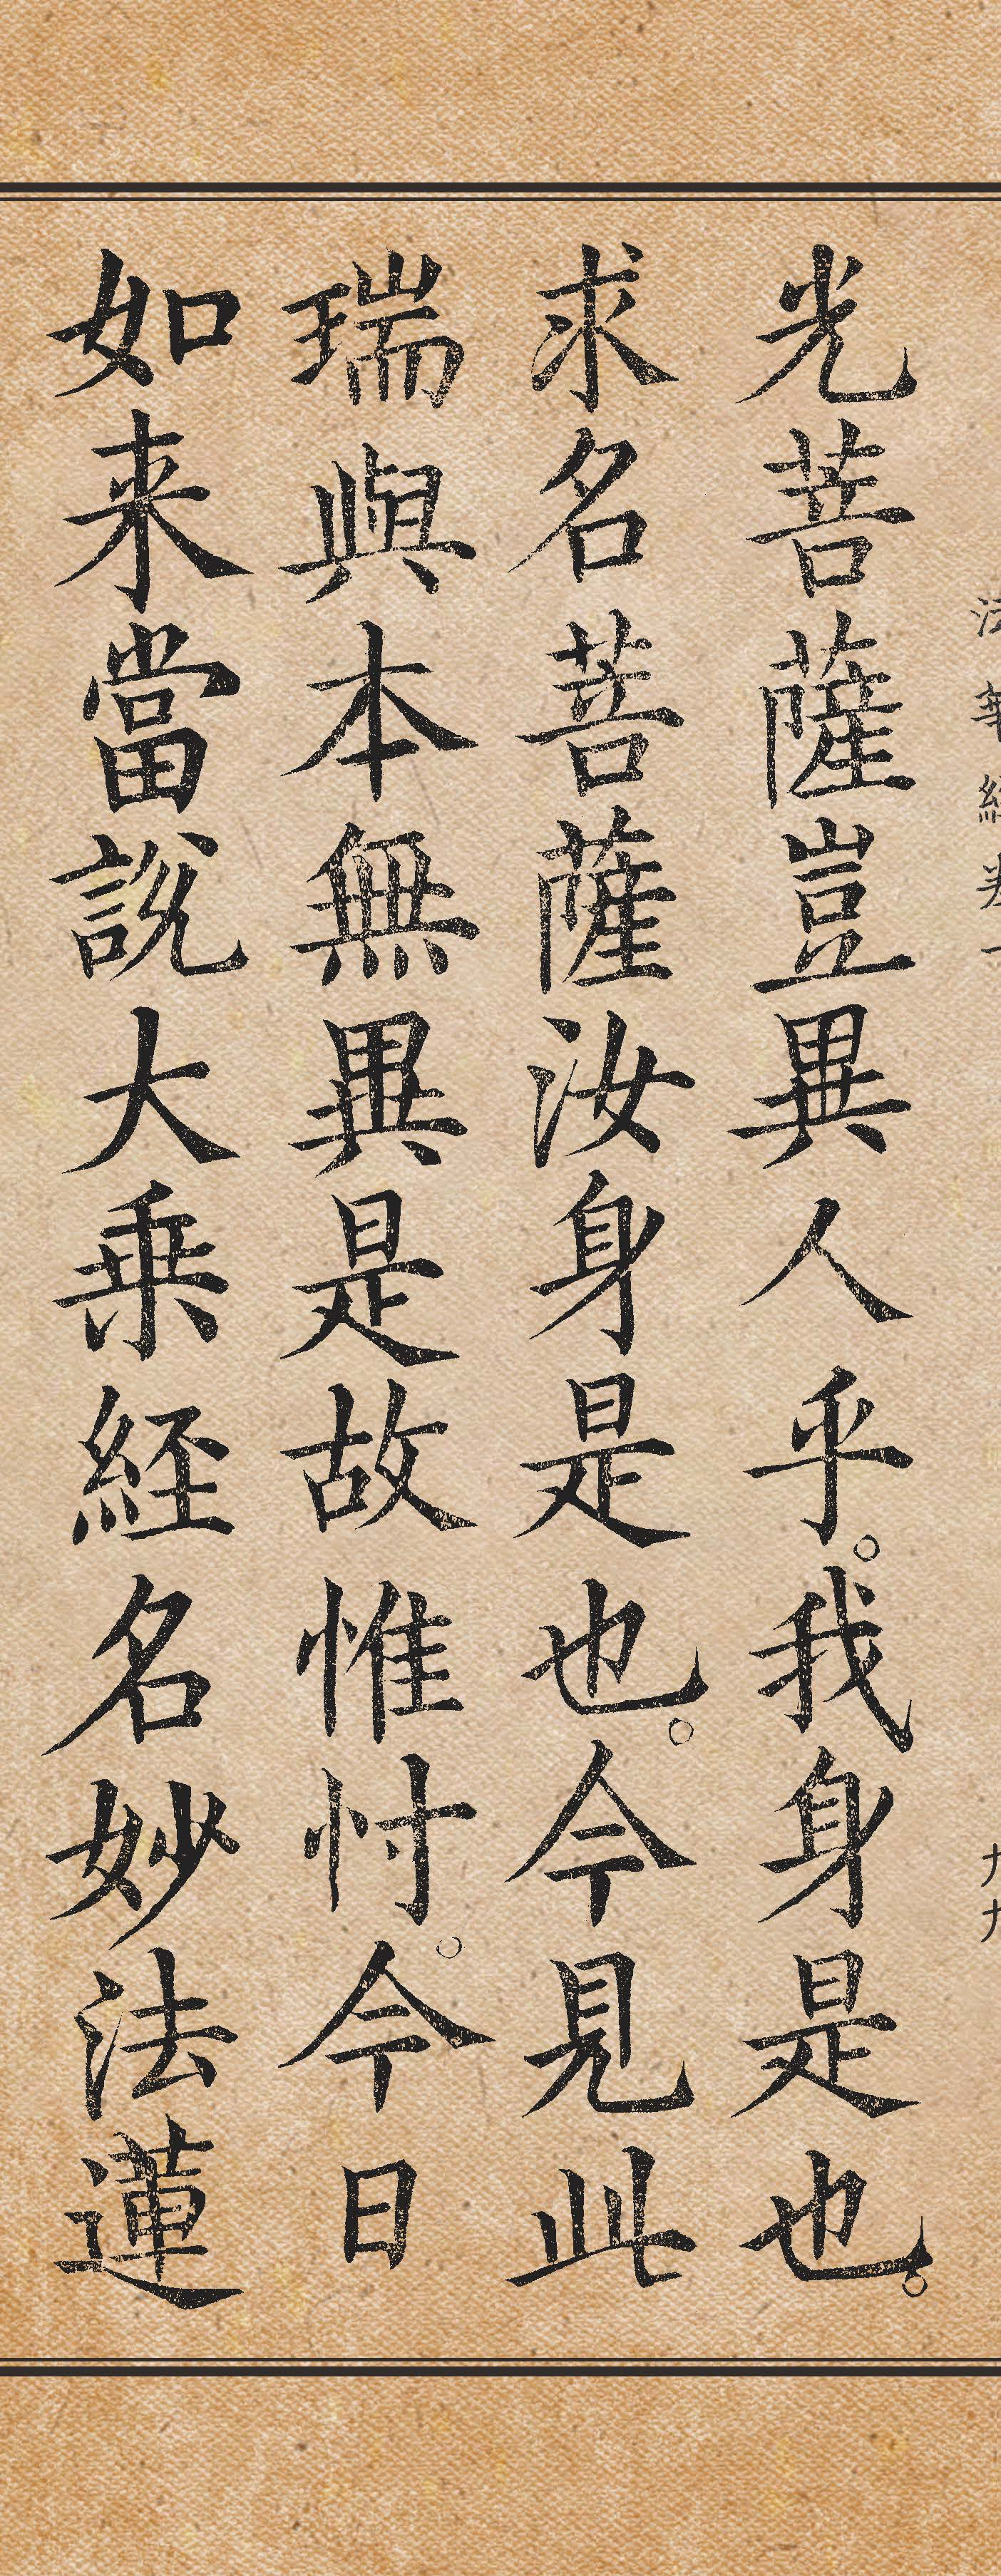 法華經卷一 九九
光菩薩豈異人乎。我身是也。
求名菩薩汝身是也。今見此
瑞與本無異是故惟忖。今日
如来當說大乗經名妙法蓮